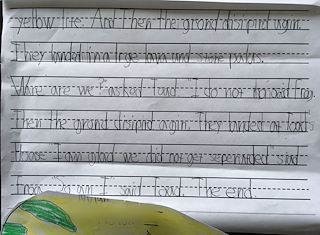 yellow lite. And Then the grond disipird agin.
They landed in a lage lava and stone palas.
Ware are we?" asked Toad "I do not no said Frog.
Then the grond disipird agin. They landed at Toads
house "I am glad we did not get seperated" said
Frog. "So am I" said Toad. The end.